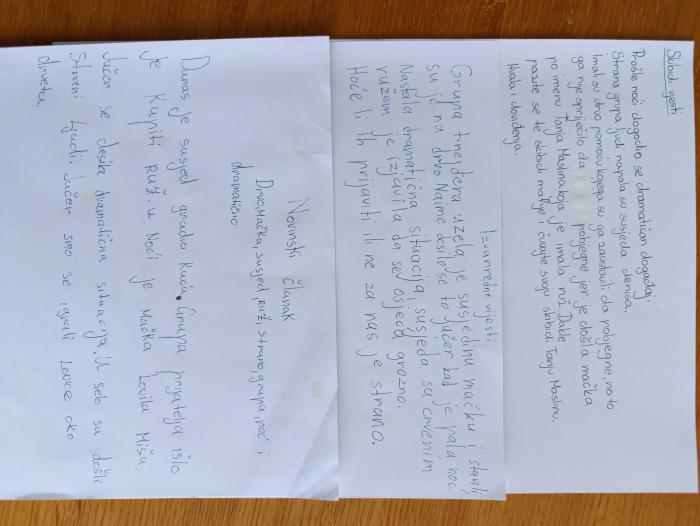 Skibidi vjesti
Prošle noći dogodio se dramatičan događaj.
Strana grupa ljudi napala su susjeda denisa,
Imali su drvo pomoću kojega su ga zaustavili da pobjegne, no to
ga nije spriječilo da pobjegne jer je došla mačka
po imenu Tanja Maslina koja je imala ruž. Dakle
pazite se te skibidi mačke i čuvajte svoju skibidi Tanju Maslinu.
Hvala i doviđenja.
Izvanredne vijesti
Grupa tinejđera uzela je susjedinu mačku i stavili
su je na drvo. Naime desilo se to jučer kad je pala noć.
Nastala dramatična situacija, susjeda sa crvenim
ružem je izjavila da se osjeća grozno.
Hoće li ih prijaviti ili ne za nas je strano.
Novinski članak
Drvo, Mačka, susjed, ruž, strano, grupa, noć i
dramatično
Danas je susjed gradio kuću. Grupa prijatelja išlo
je kupiti ruž. U Noći je Mačka Lovila Miša.
Jučer se desila dramatična situacija. U selo su došli
Strani Ljudi. Jučer smo se igrali Lovice oko
drveta.